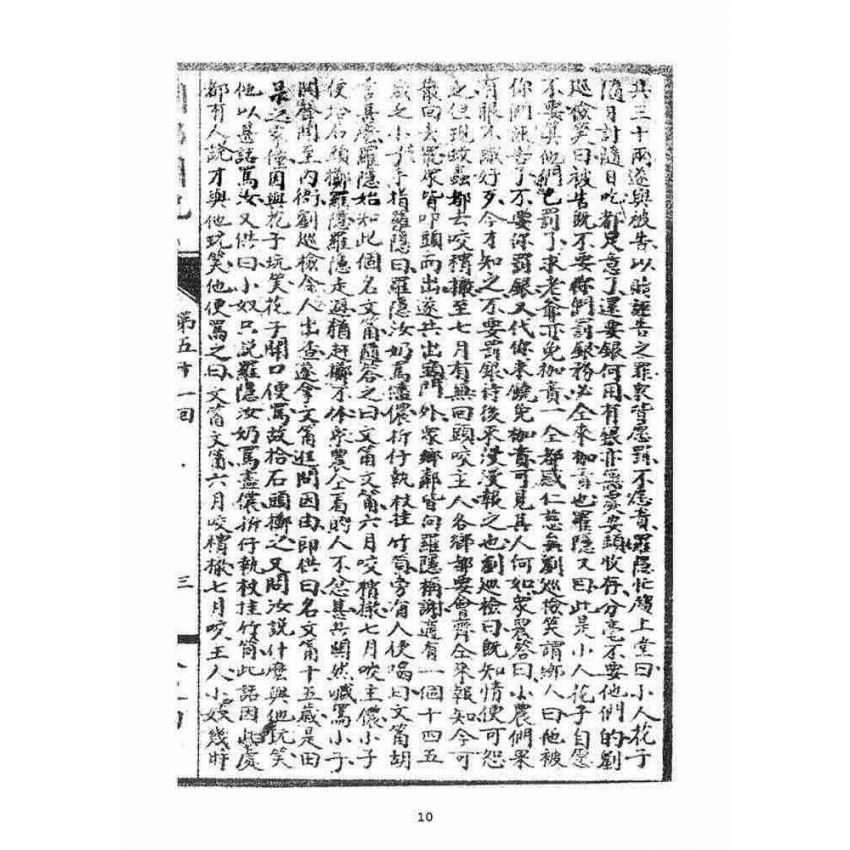 共三十兩遂與被告以賠誣告之罪衆皆愿罰不愿責羅隱忙廹上堂曰小人花子
隨日討隨日吃都足意了還要銀何用有銀亦無處安頓收存分毫不要他們的劉
巡檢笑曰被告既不要你們罰銀務必全來枷責也羅隱又曰此是小人花子自愿
不要算他們已罰了求老爺亦免枷責一全都感仁慈矣劉巡檢笑謂鄉人曰他被
你們誣告了不要你罰銀又代你求饒免枷責可見其人何如衆農答曰小農們果
有眼不識好歹今才知之不要罰銀待後來漫漫報之也劉巡檢曰既知情便可恕
之但現蚊蟲都去咬稽撽至七月有無回頭咬主人各鄉都要會齊全來報知今可
散回去罷衆皆叩頭而出遂共出頭門外衆鄉鄰皆向羅隱稱謝適有一個十四五
歲之小子手指羅隱曰羅隱汝奶罵儘儂折仔執杖挂竹筒旁有人便喝曰文甯胡
言甚麽羅隱始知此個名文甯隨答之曰文甯文甯六月咬稽撽七月咬主儂小子
便拾石頭擲羅隱羅隱走避猶赶擲才休衆農全看的人不忿甚共鬨然喊罵小子
鬨聲聞至內衙劉巡檢令人出查遂拿文甯進問因由即供曰名文甯十五歲是田
之家僮因與花子玩笑花子開口便罵故拾石頭擲之又問汝說什麽與他玩笑
他以甚話罵汝又供曰小奴只說羅隱汝奶罵盡儂折仔執杖挂竹筒此話因此處
都有人說才與他玩笑他便罵之曰文甯文甯六月咬稽撽七月咬主人小奴幾時
第五十一回
三
10